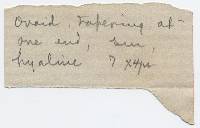 Ovoid, tapering at
one end,
hyaline 7 x 4µ